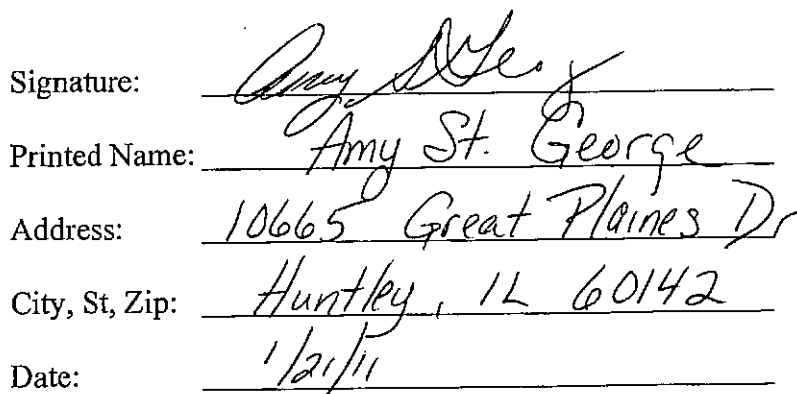 Signature: Amy St. George
Printed Name: Amy St. George
Address: 10665 Great Plaines Dr
City, St, Zip: Huntley, IL 60142
Date: 1/21/11